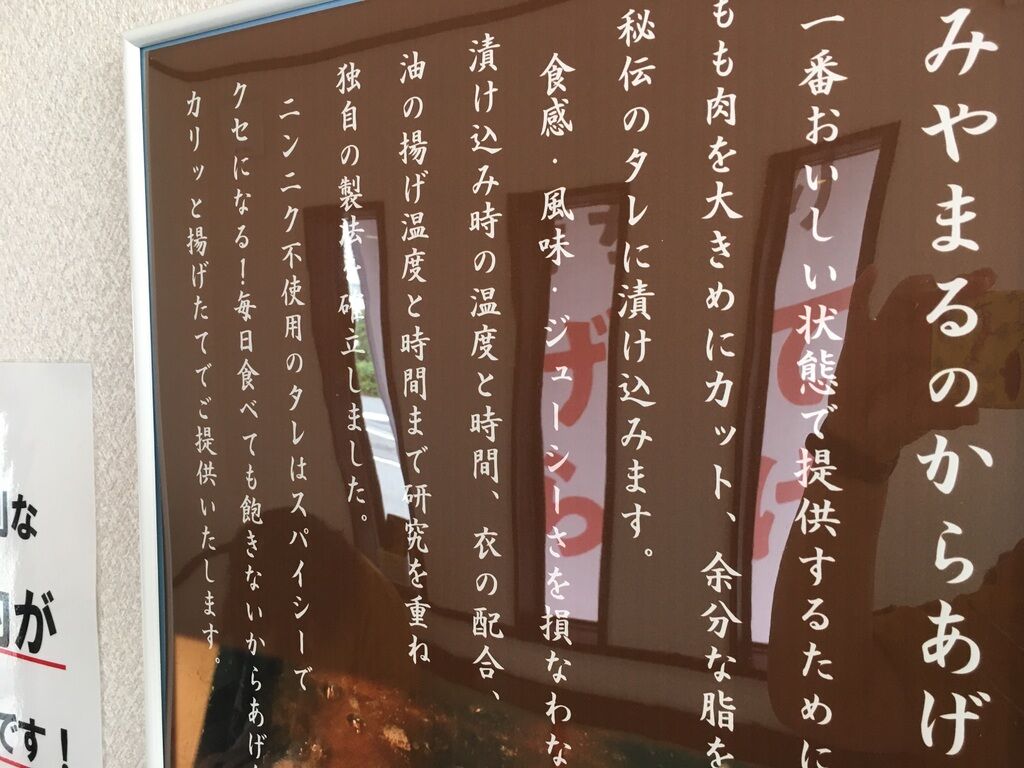 みやまるのからあげ
一番おいしい状態で提供するために
もも肉を大きめにカット、余分な脂を
秘伝のタレに漬け込みます。
食感・風味・ジューシーさを損なわな
漬け込み時の温度と時間、衣の配合、
油の揚げ温度と時間まで研究を重ね
独自の製法を確立しました。
ニンニク不使用のタレはスパイシーで
クセになる!毎日食べても飽きないからあげ
カリッと揚げたてでご提供いたします。
な
が
です!